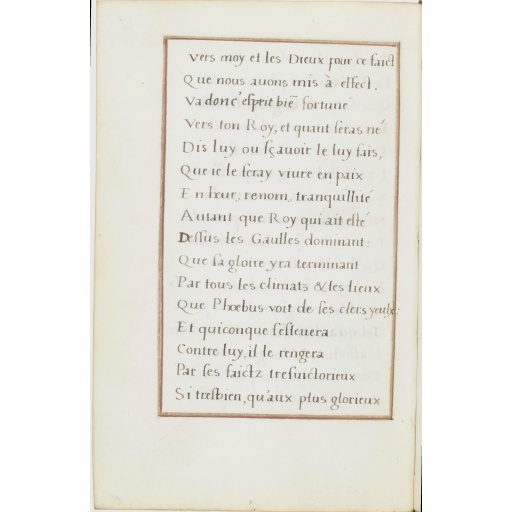 vers moy et les Dieux pour ce faict
Que nous auons mis à effect.
Va donc esprit biē fortuné
Vers ton Roy, et quant seras né
Dis luy ou sçauoir le luy fais,
Que ie le feray viure en paix
En heur, renom, tranquillité
Autant que Roy qui ait esté
Dessus les Gaulles dominant:
Que sa gloire yra terminant
Par tous les climats & les lieux
Que Phœbus voit de ses clers yeulx:
Et quiconque s'esleuera
Contre luy, il le rengera
Par ses faictz tresuictorieux
Si tresbien, qu'aux plus glorieux